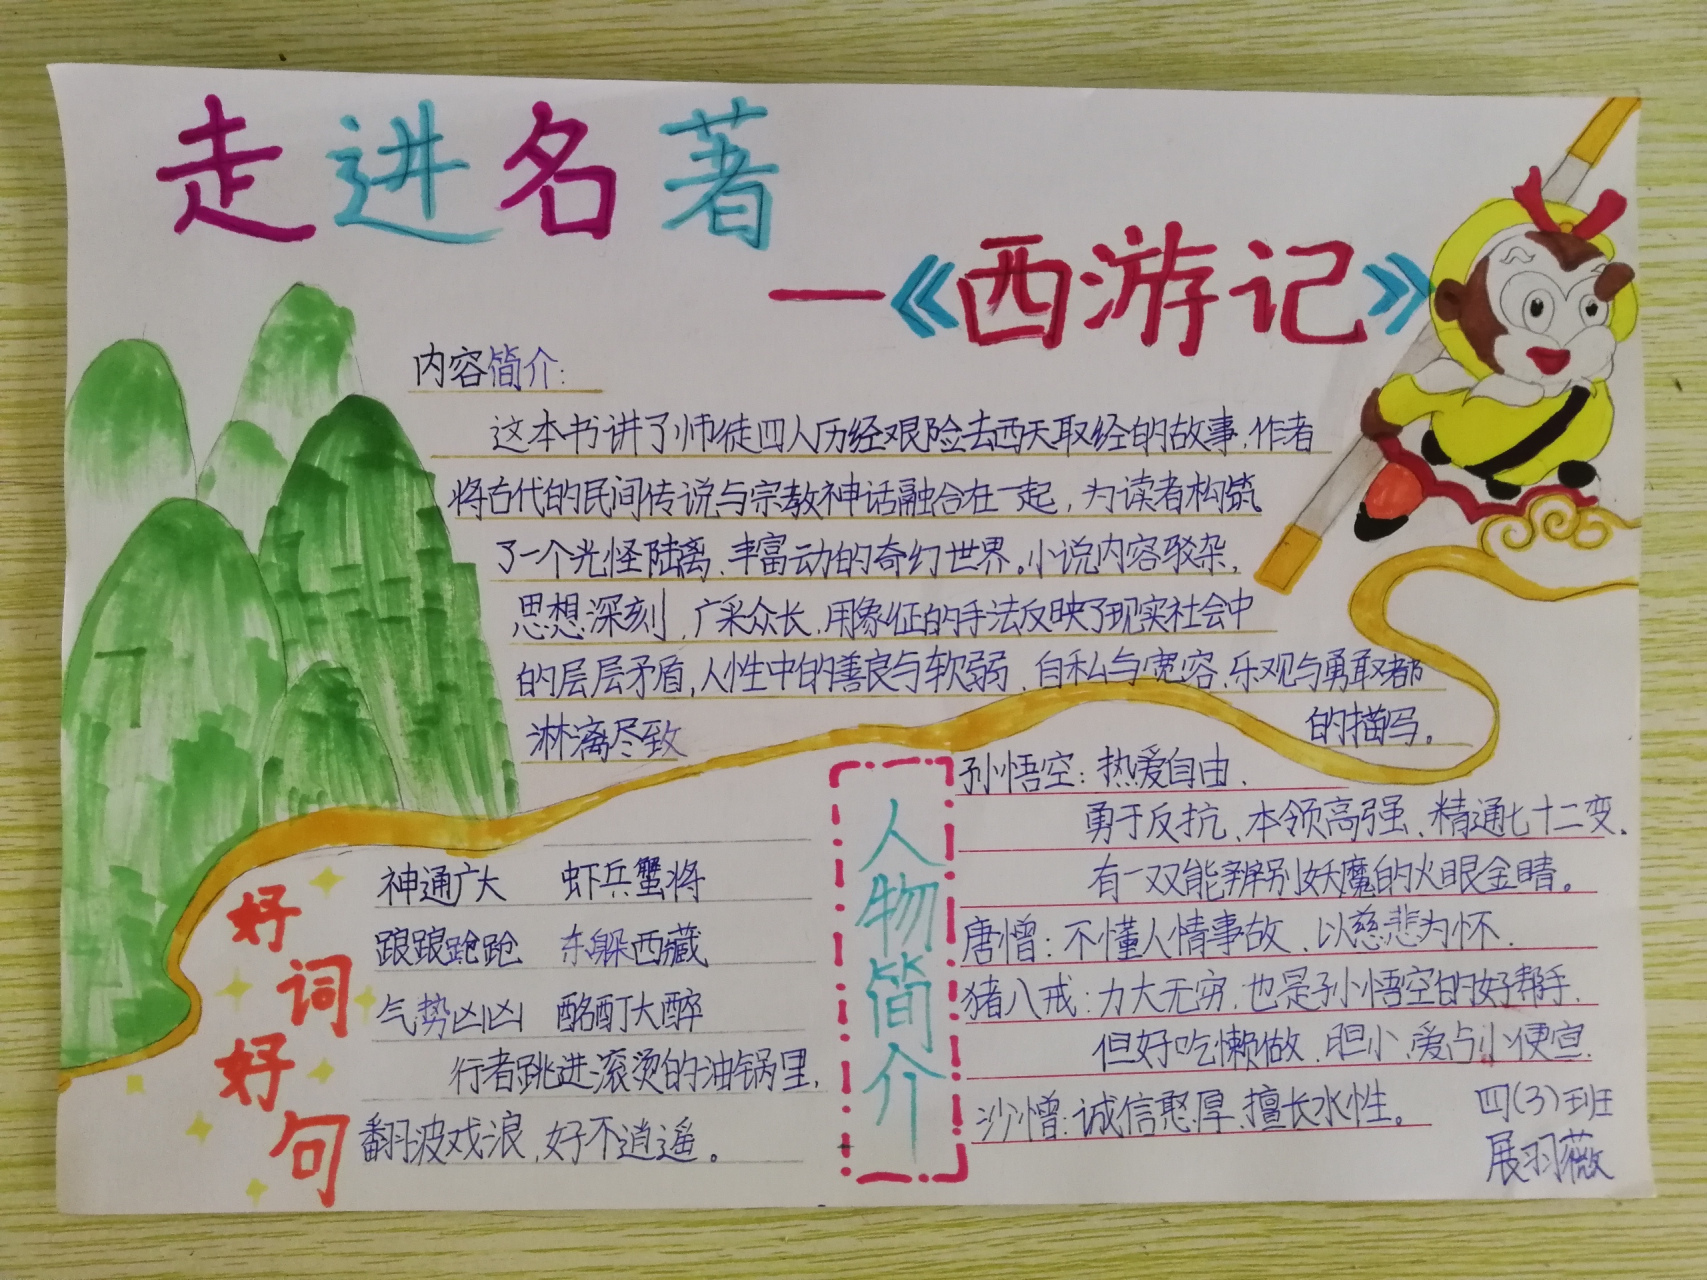 走进名著
—《西游记》
内容简介:
这本书讲了师徒四人历经艰险去西天取经的故事.作者
将古代的民间传说与宗教神话融合在一起,为读者构筑
了一个光怪陆离、丰富动的奇幻世界。小说内容驳杂,
思想深刻,广采众长,用象征的手法反映了现实社会中
的层层矛盾,人性中的善良与软弱、自私与宽容、乐观与勇敢都
淋漓尽致 的描写。
好词好句
神通广大 虾兵蟹将
踉踉跄跄 东躲西藏
气势凶凶 酩酊大醉
行者跳进滚烫的油锅里,
翻波戏浪,好不逍遥。
人物简介
孙悟空:热爱自由、
勇于反抗、本领高强、精通七十二变.
有一双能辨别妖魔的火眼金睛。
唐憎:不懂人情事故、以慈悲为怀.
猪八戒:力大无穷.也是孙悟空的好帮手.
但好吃懒做、胆小、爱占小便宜.
沙憎:诚信憨厚、擅长水性。
四(3)班
展羽薇